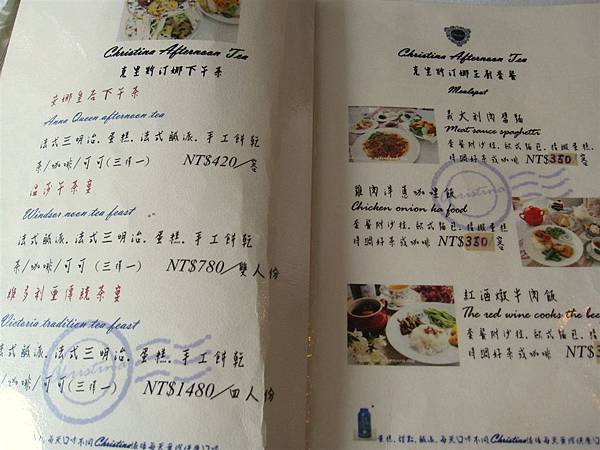 Christina Afternoon Tea
克里斯汀娜下午茶
安娜皇后下午茶
Anna Queen afternoon tea
法式三明治.蛋糕.法式鹹派.手工餅乾
茶/咖啡/可可(三擇一) NT$420/客
溫莎午茶宴
Windsor noon tea feast
法式鹹派.法式三明治.蛋糕.手工餅乾
茶/咖啡/可可(三擇一) NT$780/雙人份
維多利亞傳統茶宴
Victoria tradition tea feast
法式鹹派.法式三明治.蛋糕.手工餅乾
/咖啡/可可(三擇一) NT$1480/四人份
Christina
每天口味不同Christina
Christina Afternoon Tea
克里斯汀娜主廚套餐
Mealspot
義大利肉醬麵
Meat sauce spaghetti
套餐附沙拉.歐式麵包.精緻蛋糕.
特調好茶或咖啡 NT$350/客
Christina
雞肉洋蔥咖哩飯
Chicken onion ka food
套餐附沙拉.歐式麵包.精緻蛋糕
特調好茶或咖啡 NT$350/客
紅酒燉牛肉飯
The red wine cooks the bee
套餐附沙拉.歐式麵包.精
特調好茶或咖啡 NT$3
蛋糕.甜點.鹹派.每天口味不同Christina